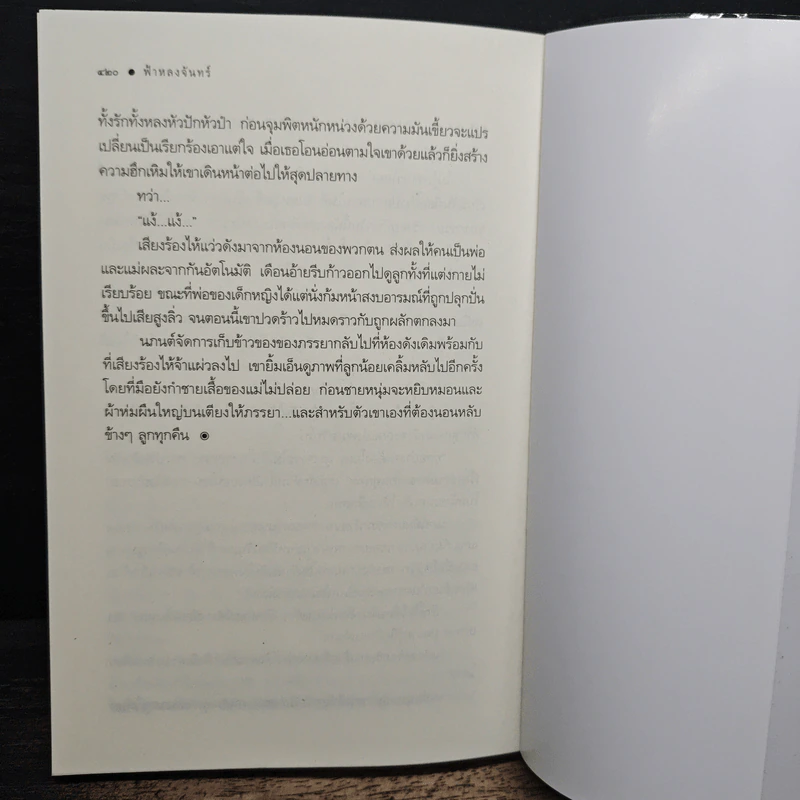 ๔๒๐ ● ฟ้าหลงจันทร์
ทั้งรักทั้งหลงหัวปักหัวปำ ก่อนจุมพิตหนักหน่วงด้วยความมันเขี้ยวจะแปร
เปลี่ยนเป็นเรียกร้องเอาแต่ใจ เมื่อเธอโอนอ่อนตามใจเขาด้วยแล้วก็ยิ่งสร้าง
ความฮึกเหิมให้เขาเดินหน้าต่อไปให้สุดปลายทาง
ทว่า...
“แง้...แง้...”
เสียงร้องไห้แว่วดังมาจากห้องนอนของพวกตน ส่งผลให้คนเป็นพ่อ
และแม่ผละจากกันอัตโนมัติ เดือนอ้ายรีบก้าวออกไปดูลูกทั้งที่แต่งกายไม่
เรียบร้อย ขณะที่พ่อของเด็กหญิงได้แต่นั่งก้มหน้าสงบอารมณ์ที่ถูกปลุกปั่น
ขึ้นไปเสียสูงลิ่ว จนตอนนี้เขาปวดร้าวไปหมดราวกับถูกผลักตกลงมา
นภนต์จัดการเก็บข้าวของของภรรยากลับไปที่ห้องดังเดิมพร้อมกับ
ที่เสียงร้องไห้จ้าแผ่วลงไป เขายิ้มเอ็นดูภาพที่ลูกน้อยเคลิ้มหลับไปอีกครั้ง
โดยที่มือยังกำชายเสื้อของแม่ไม่ปล่อย ก่อนชายหนุ่มจะหยิบหมอนและ
ผ้าห่มผืนใหญ่บนเตียงให้ภรรยา...และสำหรับตัวเขาเองที่ต้องนอนหลับ
ข้างๆ ลูกทุกคืน ◉